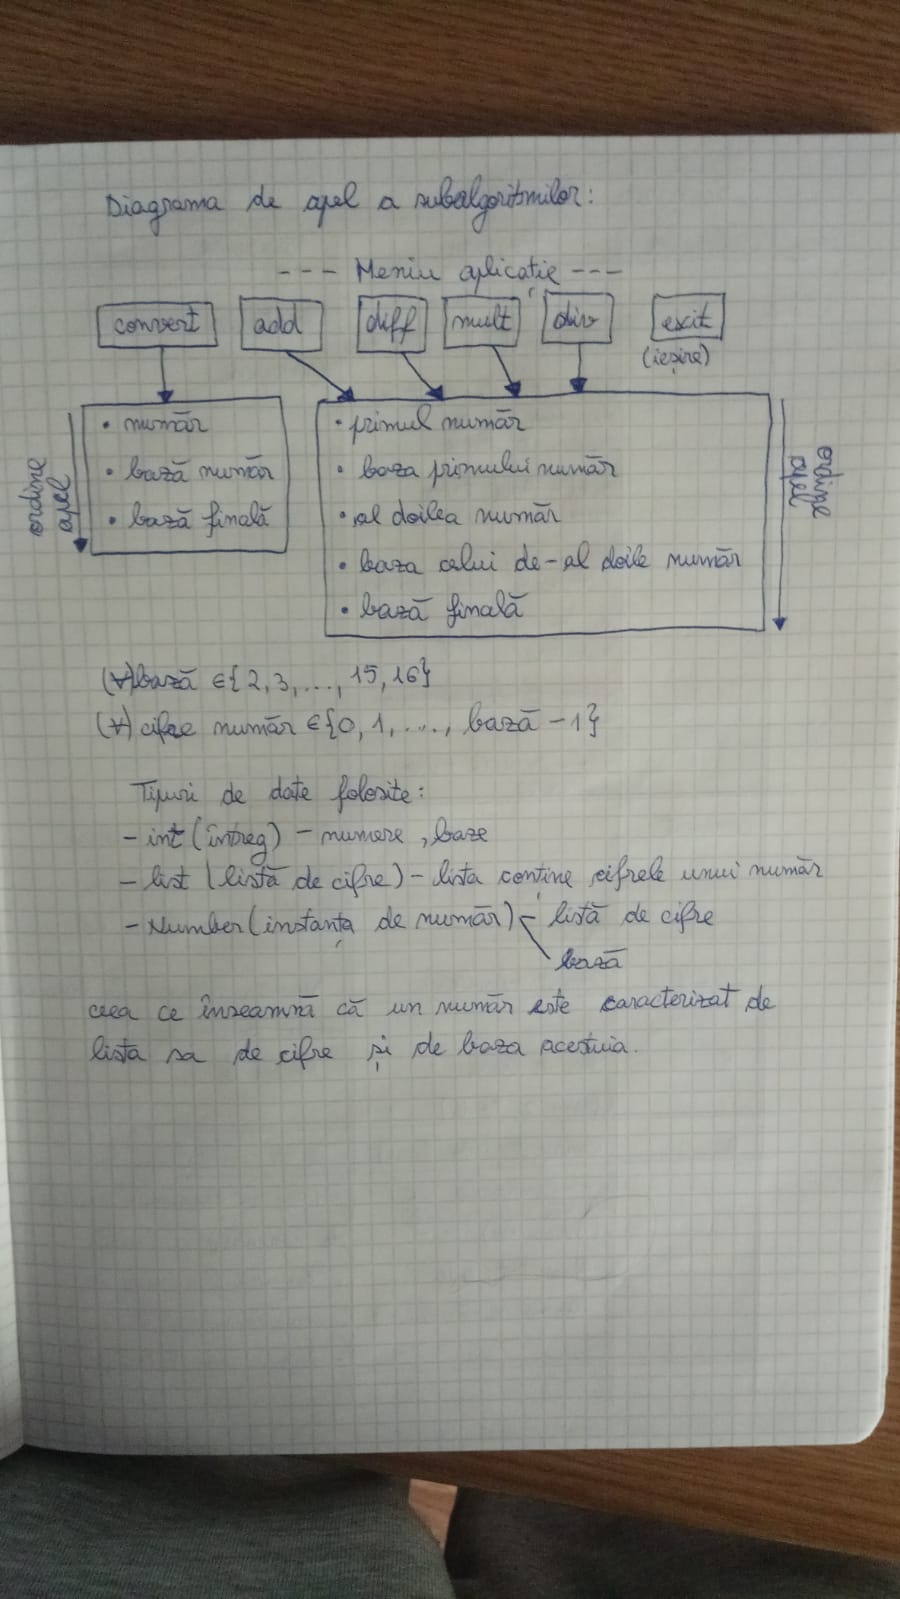 Diagrama de apel a subalgoritmilor:
--- Meniu aplicație ---
convert add diff mult div exit
(ieșire)
ordine apel
• număr
• bază număr
• bază finală
• primul număr
• baza primului număr
• al doilea număr
• baza celui de-al doile număr
• bază finală
ordine apel
(∀) bază ∈ {2, 3, ..., 15, 16}
(∀) cifre număr ∈ {0, 1, ..., bază - 1}
Tipuri de date folosite:
- int (întreg) - numere, baze
- list (listă de cifre) - lista conține cifrele unui număr
- Number (instanța de număr) - listă de cifre
bază
ceea ce înseamnă că un număr este caracterizat de
lista sa de cifre și de baza acestuia.